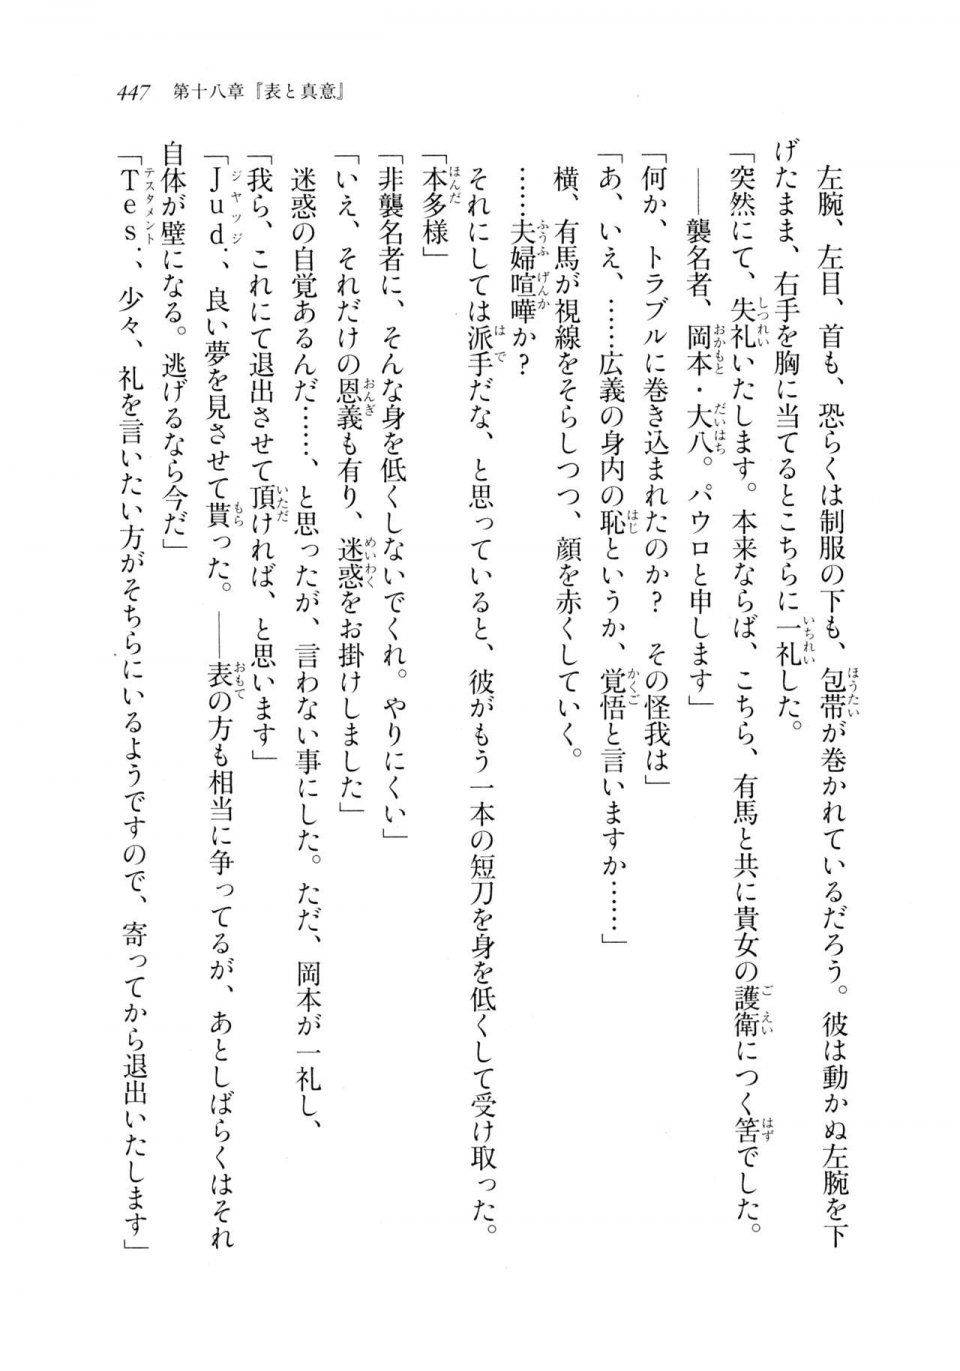 447 第十八章『表と真意』
左腕、左目、首も、恐らくは制服の下も、包帯が巻かれているだろう。彼は動かぬ左腕を下
げたまま、右手を胸に当てるとこちらに一礼した。
「突然にて、失礼いたします。本来ならば、こちら、有馬と共に貴女の護衛につく筈でした。
――襲名者、岡本・大八。パウロと申します」
「何か、トラブルに巻き込まれたのか？　その怪我は」
「あ、いえ、……広義の身内の恥というか、覚悟と言いますか……」
横、有馬が視線をそらしつつ、顔を赤くしていく。
……夫婦喧嘩か？
それにしては派手だな、と思っていると、彼がもう一本の短刀を身を低くして受け取った。
「本多様」
「非襲名者に、そんな身を低くしないでくれ。やりにくい」
「いえ、それだけの恩義も有り、迷惑をお掛けしました」
迷惑の自覚あるんだ……、と思ったが、言わない事にした。ただ、岡本が一礼し、
「我ら、これにて退出させて頂ければ、と思います」
「Jud.、良い夢を見させて貰った。――表の方も相当に争ってるが、あとしばらくはそれ
自体が壁になる。逃げるなら今だ」
「Tes.、少々、礼を言いたい方がそちらにいるようですので、寄ってから退出いたします」